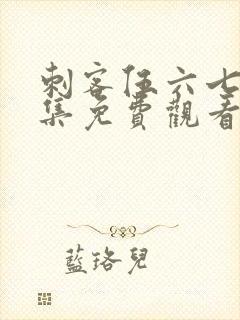 刺客伍六七
集免費觀看
藍珞兒